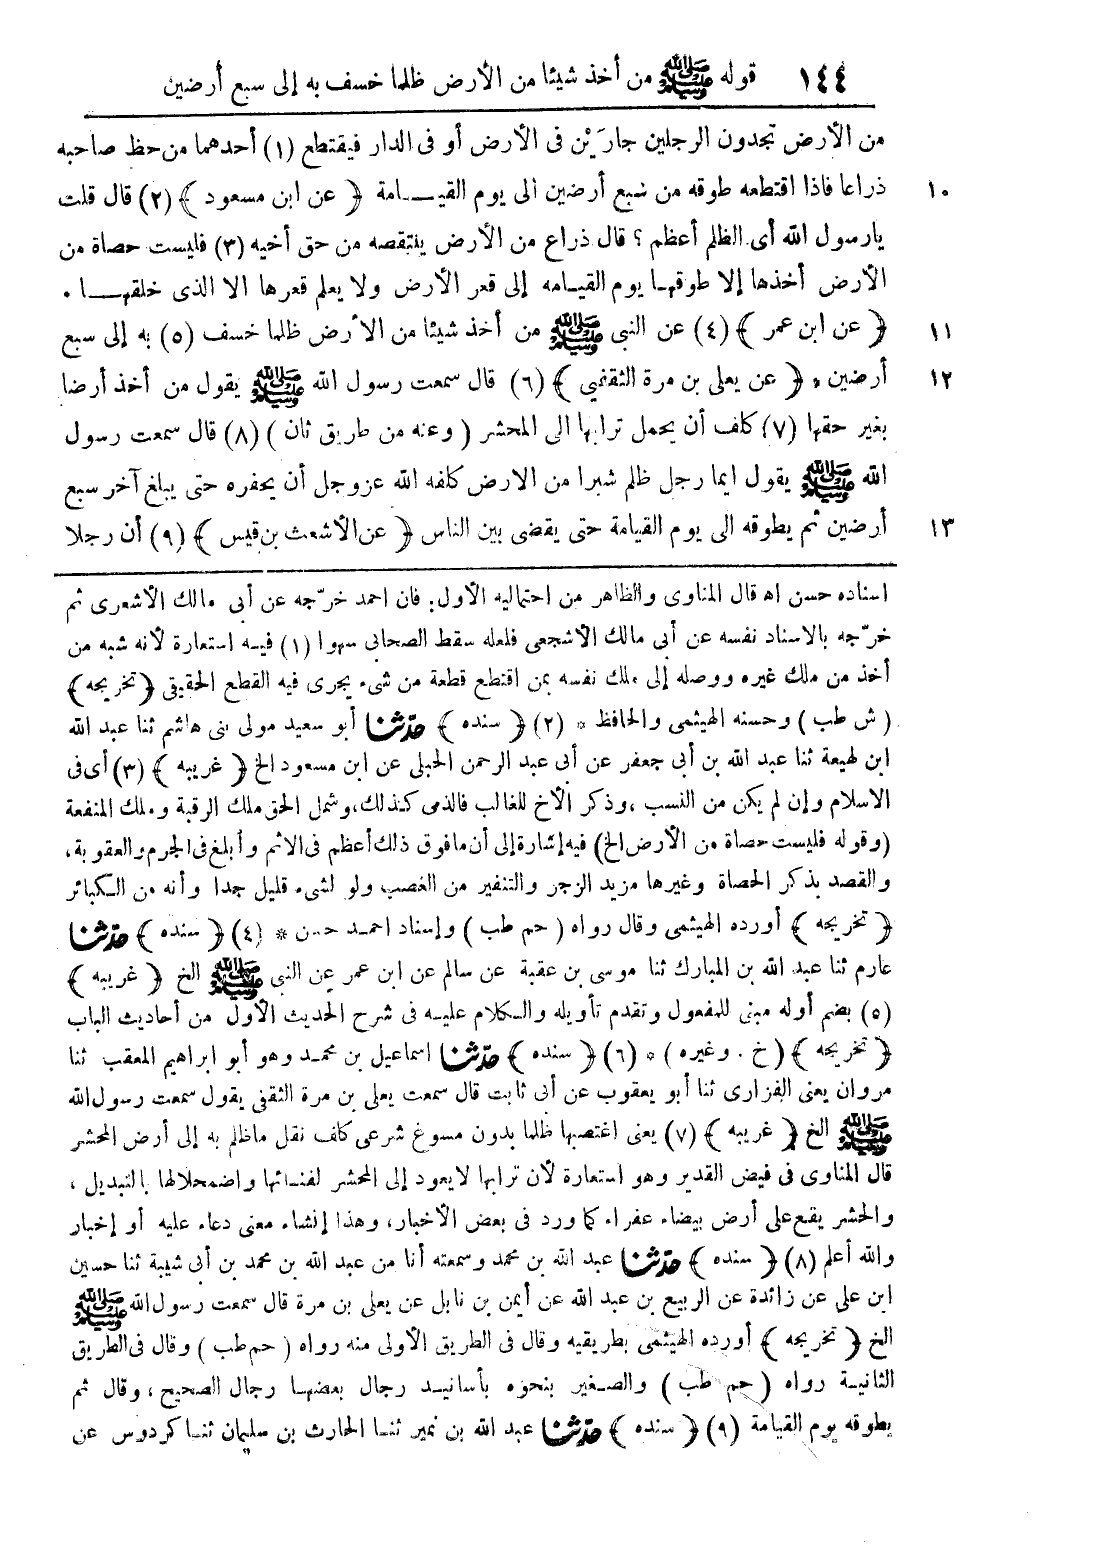 ١٤٤ قوله ﷺ من أخذ شيئا من الأرض ظلما خسف به إلى سبع أرضين
من الأرض تجدون الرجلين جارَيْن فى الأرض أو فى الدار فيقتطع (١) أحدهما من حظ صاحبه
١٠ ذراعا فاذا اقتطعه طوقه من سبع أرضين الى يوم القيامة ﴿ عن ابن مسعود ﴾ (٢) قال قلت
يارسول الله أى الظلم أعظم ؟ قال ذراع من الأرض ينتقصه من حق أخيه (٣) فليست حصاة من
الأرض أخذها إلا طوقها يوم القيامه إلى قعر الأرض ولا يعلم قعرها الا الذى خلقها .
١١ ﴿ عن ابن عمر ﴾ (٤) عن النبى ﷺ من أخذ شيئا من الأرض ظلما خسف (٥) به إلى سبع
١٢ أرضين . ﴿ عن يعلى بن مرة الثقفي ﴾ (٦) قال سمعت رسول الله ﷺ يقول من أخذ أرضا
بغير حقها (٧) كلف أن يحمل ترابها الى المحشر ( وعنه من طريق ثان ) (٨) قال سمعت رسول
الله ﷺ يقول ايما رجل ظلم شبرا من الارض كلفه الله عزوجل أن يحفره حتى يبلغ آخر سبع
١٣ أرضين ثم يطوقه الى يوم القيامة حتى يقضى بين الناس ﴿ عن الأشعث بن قيس ﴾ (٩) أن رجلا
اسناده حسن اه قال المناوى والظاهر من احتماليه الأول: فان احمد خرّجه عن أبى مالك الأشعرى ثم
خرّجه بالاسناد نفسه عن أبى مالك الأشجعى فلعله سقط الصحابى سهوا (١) فيه استعارة لأنه شبه من
أخذ من ملك غيره ووصله إلى ملك نفسه بمن اقتطع قطعة من شىء يجرى فيه القطع الحقيقى ﴿ تخريجه ﴾
( ش طب ) وحسنه الهيثمى والحافظ * (٢) ﴿ سنده ﴾ حدّثنا أبو سعيد مولى بنى هاشم ثنا عبد الله
ابن لهيعة ثنا عبد الله بن أبى جعفر عن أبى عبد الرحمن الحبلى عن ابن مسعود الخ ﴿ غريبه ﴾ (٣) أى فى
الاسلام وإن لم يكن من النسب ، وذكر الأخ للغالب فالذمى كذلك، وشمل الحق ملك الرقبة وملك المنفعة
(وقوله فليست حصاة من الأرض الخ) فيه إشارة إلى أن مافوق ذلك أعظم فى الاثم وأبلغ فى الجرم والعقوبة،
والقصد بذكر الحصاة وغيرها مزيد الزجر والتنفير من الغصب ولو لشىء قليل جدا وأنه من الكبائر
﴿ تخريجه ﴾ أورده الهيثمى وقال رواه ( حم طب ) وإسناد احمد حسن * (٤) ﴿ سنده ﴾ حدّثنا
عارم ثنا عبد الله بن المبارك ثنا موسى بن عقبة عن سالم عن ابن عمر عن النبى ﷺ الخ ﴿ غريبه ﴾
(٥) بضم أوله مبنى للمفعول وتقدم تأويله والكلام عليه فى شرح الحديث الأول من أحاديث الباب
﴿ تخريجه ﴾ ( خ . وغيره ) * (٦) ﴿ سنده ﴾ حدّثنا اسماعيل بن محمد وهو أبو ابراهيم المعقب ثنا
مروان يعنى الفزارى ثنا أبو يعقوب عن أبى ثابت قال سمعت يعلى بن مرة الثقفى يقول سمعت رسول الله
ﷺ الخ ﴿ غريبه ﴾ (٧) يعنى اغتصبها ظلما بدون مسوغ شرعى كلف نقل ماظلم به إلى أرض المحشر
قال المناوى فى فيض القدير وهو استعارة لأن ترابها لايعود إلى المحشر لفنائها واضمحلالها بالتبديل ،
والحشر يقع على أرض بيضاء عفراء كما ورد فى بعض الأخبار، وهذا إنشاء معنى دعاء عليه أو إخبار
والله أعلم (٨) ﴿ سنده ﴾ حدّثنا عبد الله بن محمد وسمعته أنا من عبد الله بن محمد بن أبى شيبة ثنا حسين
ابن على عن زائدة عن الربيع بن عبد الله عن أيمن بن نابل عن يعلى بن مرة قال سمعت رسول الله ﷺ
الخ ﴿ تخريجه ﴾ أورده الهيثمى بطريقيه وقال فى الطريق الأولى منه رواه ( حم طب ) وقال فى الطريق
الثانية رواه ( حم طب ) والصغير بنحوه بأسانيد رجال بعضها رجال الصحيح ، وقال ثم
يطوقه يوم القيامة (٩) ﴿ سنده ﴾ حدّثنا عبد الله بن نمير ثنا الحارث بن سليمان ثنا كردوس عن